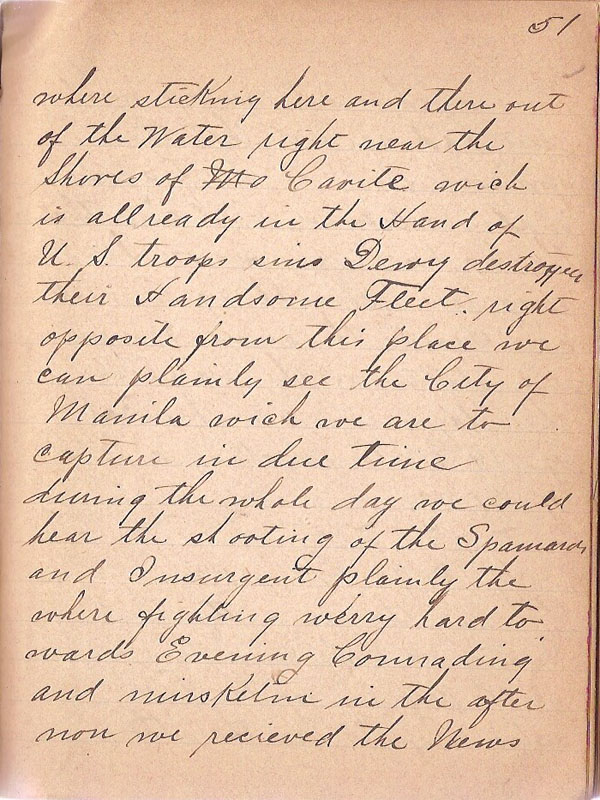 51
where sticking here and there out
of the Water right near the
Shores of Mo Cavite wich
is allready in the Hand of
U. S. troops sins Dewy destroyed
their Handsome Fleet. right
opposite from this place we
can plainly see the City of
Manila wich we are to
capture in due time
during the whole day we could
hear the shooting of the Spaniards
and Insurgent plainly the
where fighting werry hard to
wards Evening
and in the after
non we recieved the News